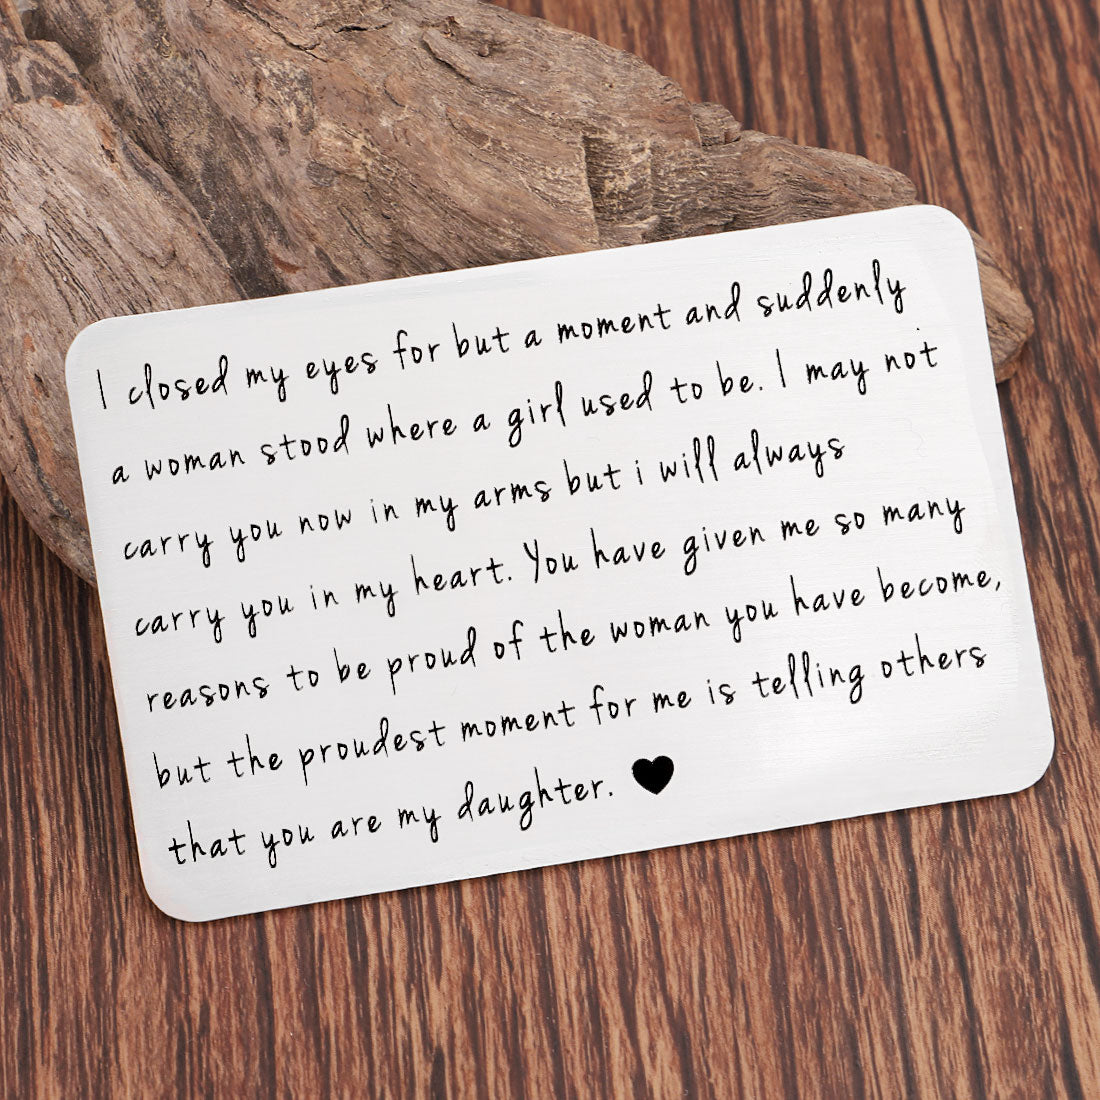 I closed my eyes for but a moment and suddenly
a woman stood where a girl used to be. I may not
carry you now in my arms but i will always
carry you in my heart. You have given me so many
reasons to be proud of the woman you have become,
but the proudest moment for me is telling others
that you are my daughter. ♥